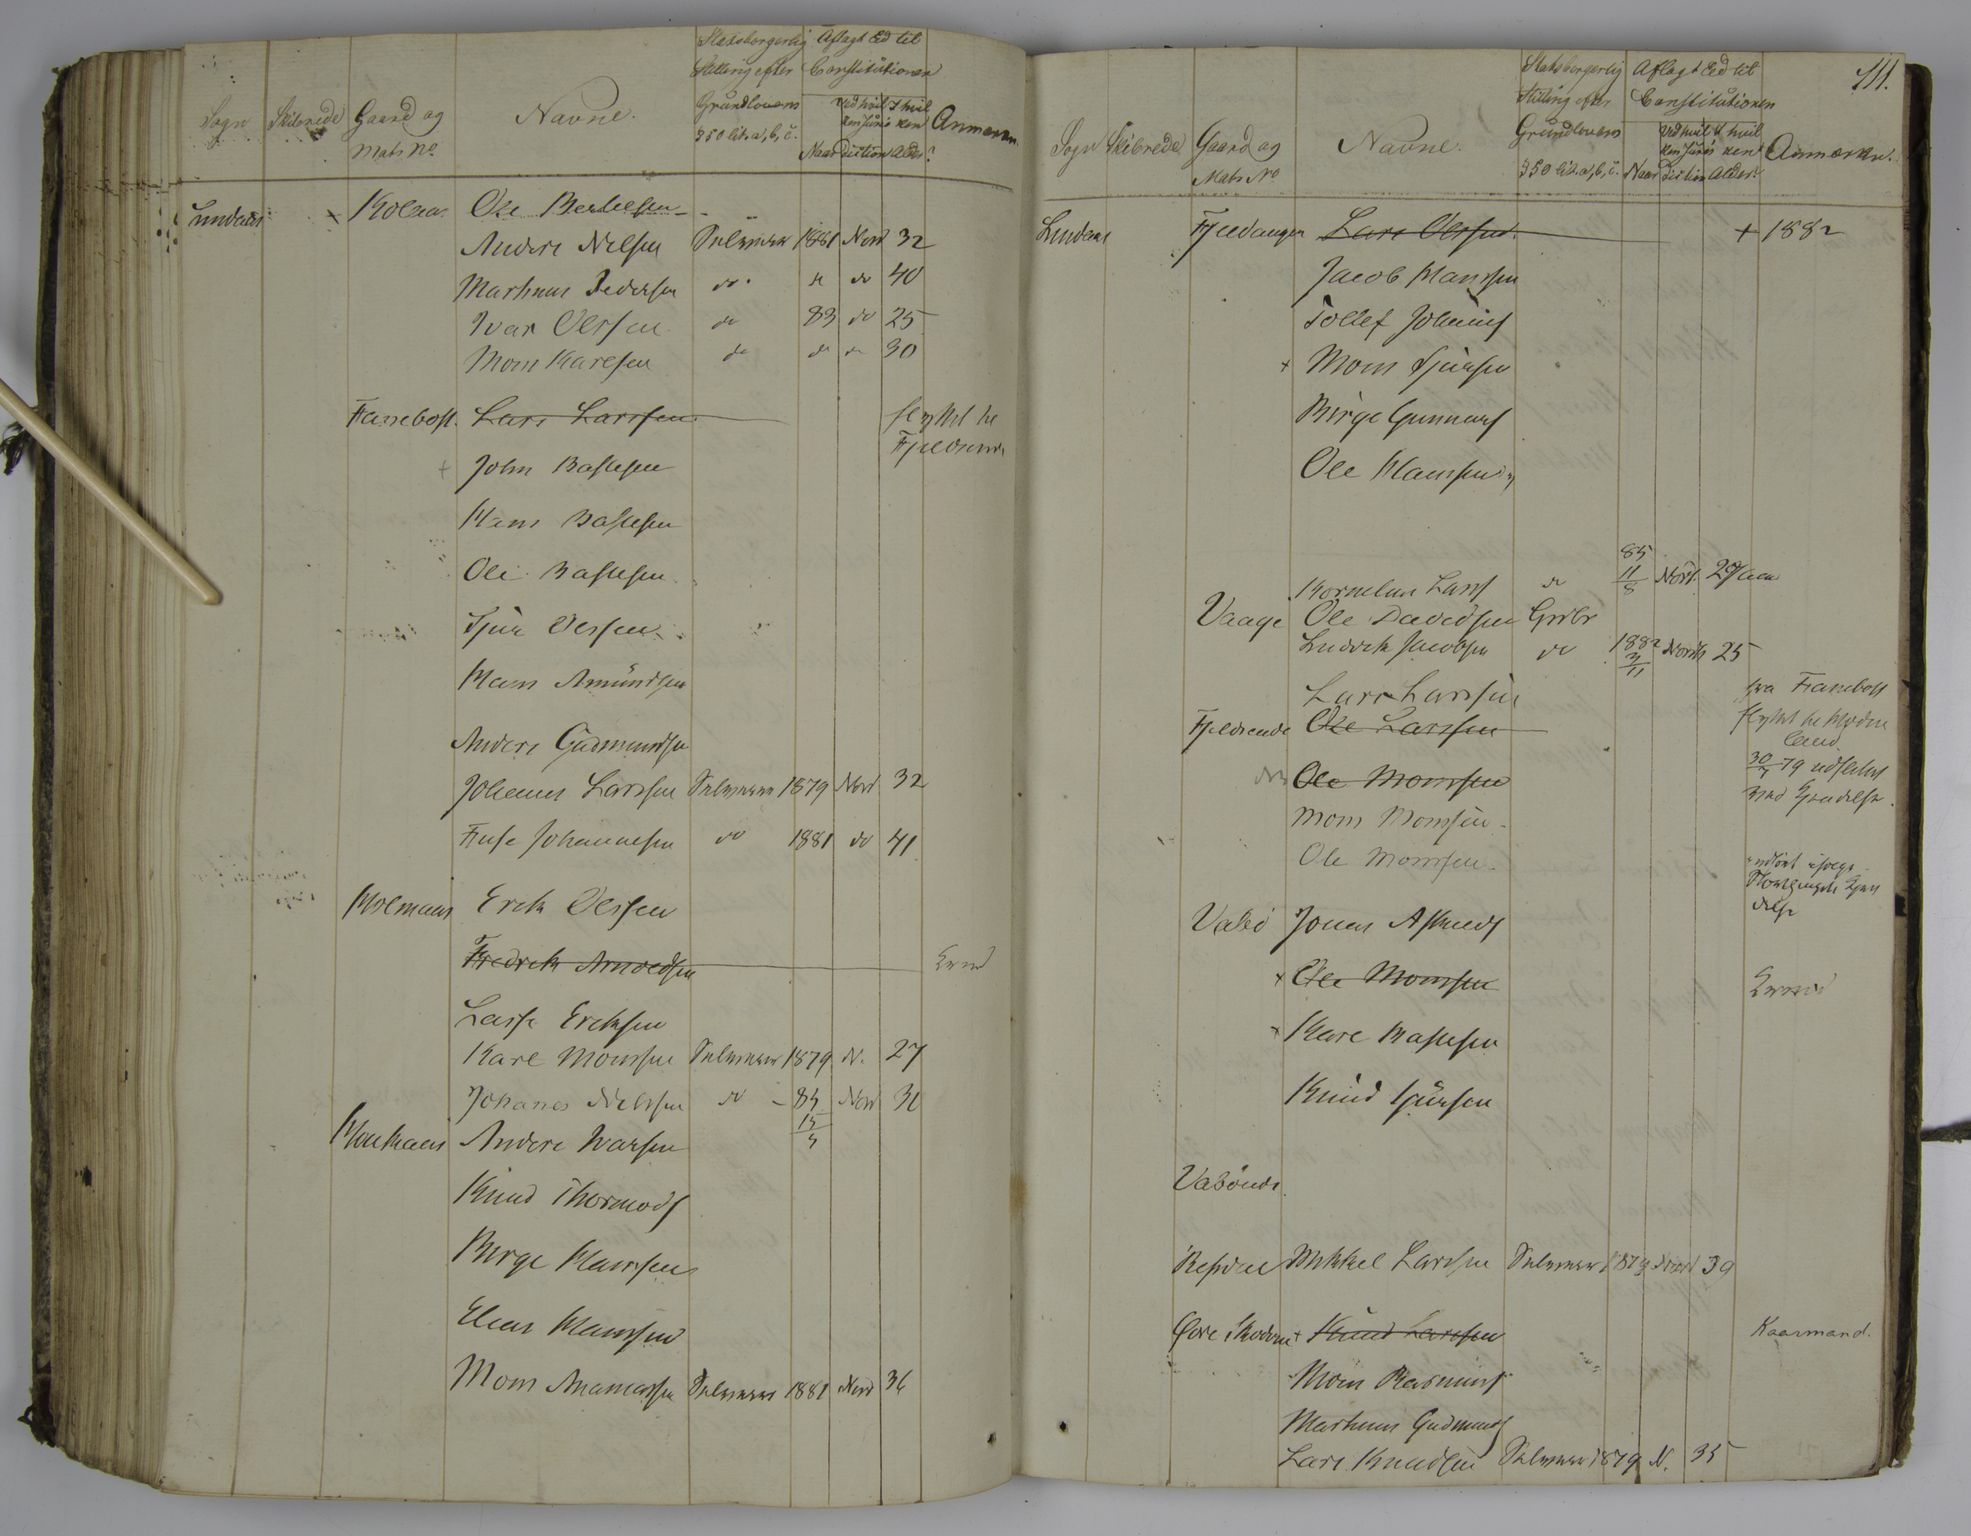 Sogn Skibrede Gaard og Mats No Navne. Statsborgerlig Stilling efter Grundlovens § 50 lit. a, b, c. Aflagt Ed til Constitutionen Naar Ved hvilken Jurisdiction I hvilken Alder? Anmærkn.
Lindaas + Kolaas Ole Bertelsen
Anders Nelsen Selveier 1881 Nord 32
Mathias Pedersen do " do 40
Ivar Olssen do 83 do 25
Mons Karlsen do do do 30
Fanebost. Lars Larssen flyttet til
Fjeldsende
+ John Baste­sen
Hans Bastesen
Ole Bastesen
Sjur Olssen
Hans Amundsen
Anders Gudmundsen
Johannes Larssen Selveier 1879 Nord 32
Fuse Johannesen do 1881 do 41
Holmaas Erik Olssen
Fredrik Arnoldsen
Lasse Eriksen
Karl Monssen Selveier 1879 N. 27
Johanes Nelssen do - 84 Nord
Anders Ivarsen
Knud Thormods
Børge Hanssen
Elias Hanssen
Mons Selveier 1881 Nord 36
111.
Sogn Skibrede Gaard og Mats No Navne. Statsborgerlig Stilling efter Grundlovens § 50 lit. a, b, c. Aflagt Ed til Constitutionen Naar Ved hvilken Jurisdiction I hvilken Alder? Anmærkn.
Lindaas Fjeldanger Lars Olssen + 1882
Jacob Hanssen
Tollef Johannes
+ Mons Sjursen
Børge Gunnars
Ole Hanssen
85
Kornelius Larss do 11/8 Nord.
Vaage Ole Davidsen Grbr
Ludvik Jacobsen do 1882 Nordh 25
Lars Larssen fra Fanebost
Fjeldsende Ole Larssen flyttet til
Ole Monssen 79 udslettet
Mons Monssen
Ole Monssen
indført ifølge
Storthingets Kjen
delse
Valø Jonas
+ Ole Monssen
+ Karl Bastesen
Knud Sjursen
Vabönde
Mikkel Larssen Selveier 1879 Nord 39
+ Knud Larssen Kaarmand.
Mons Rasmus
Mathias Gudmunds
Lars Knudsen Selveier 1879 N. 35